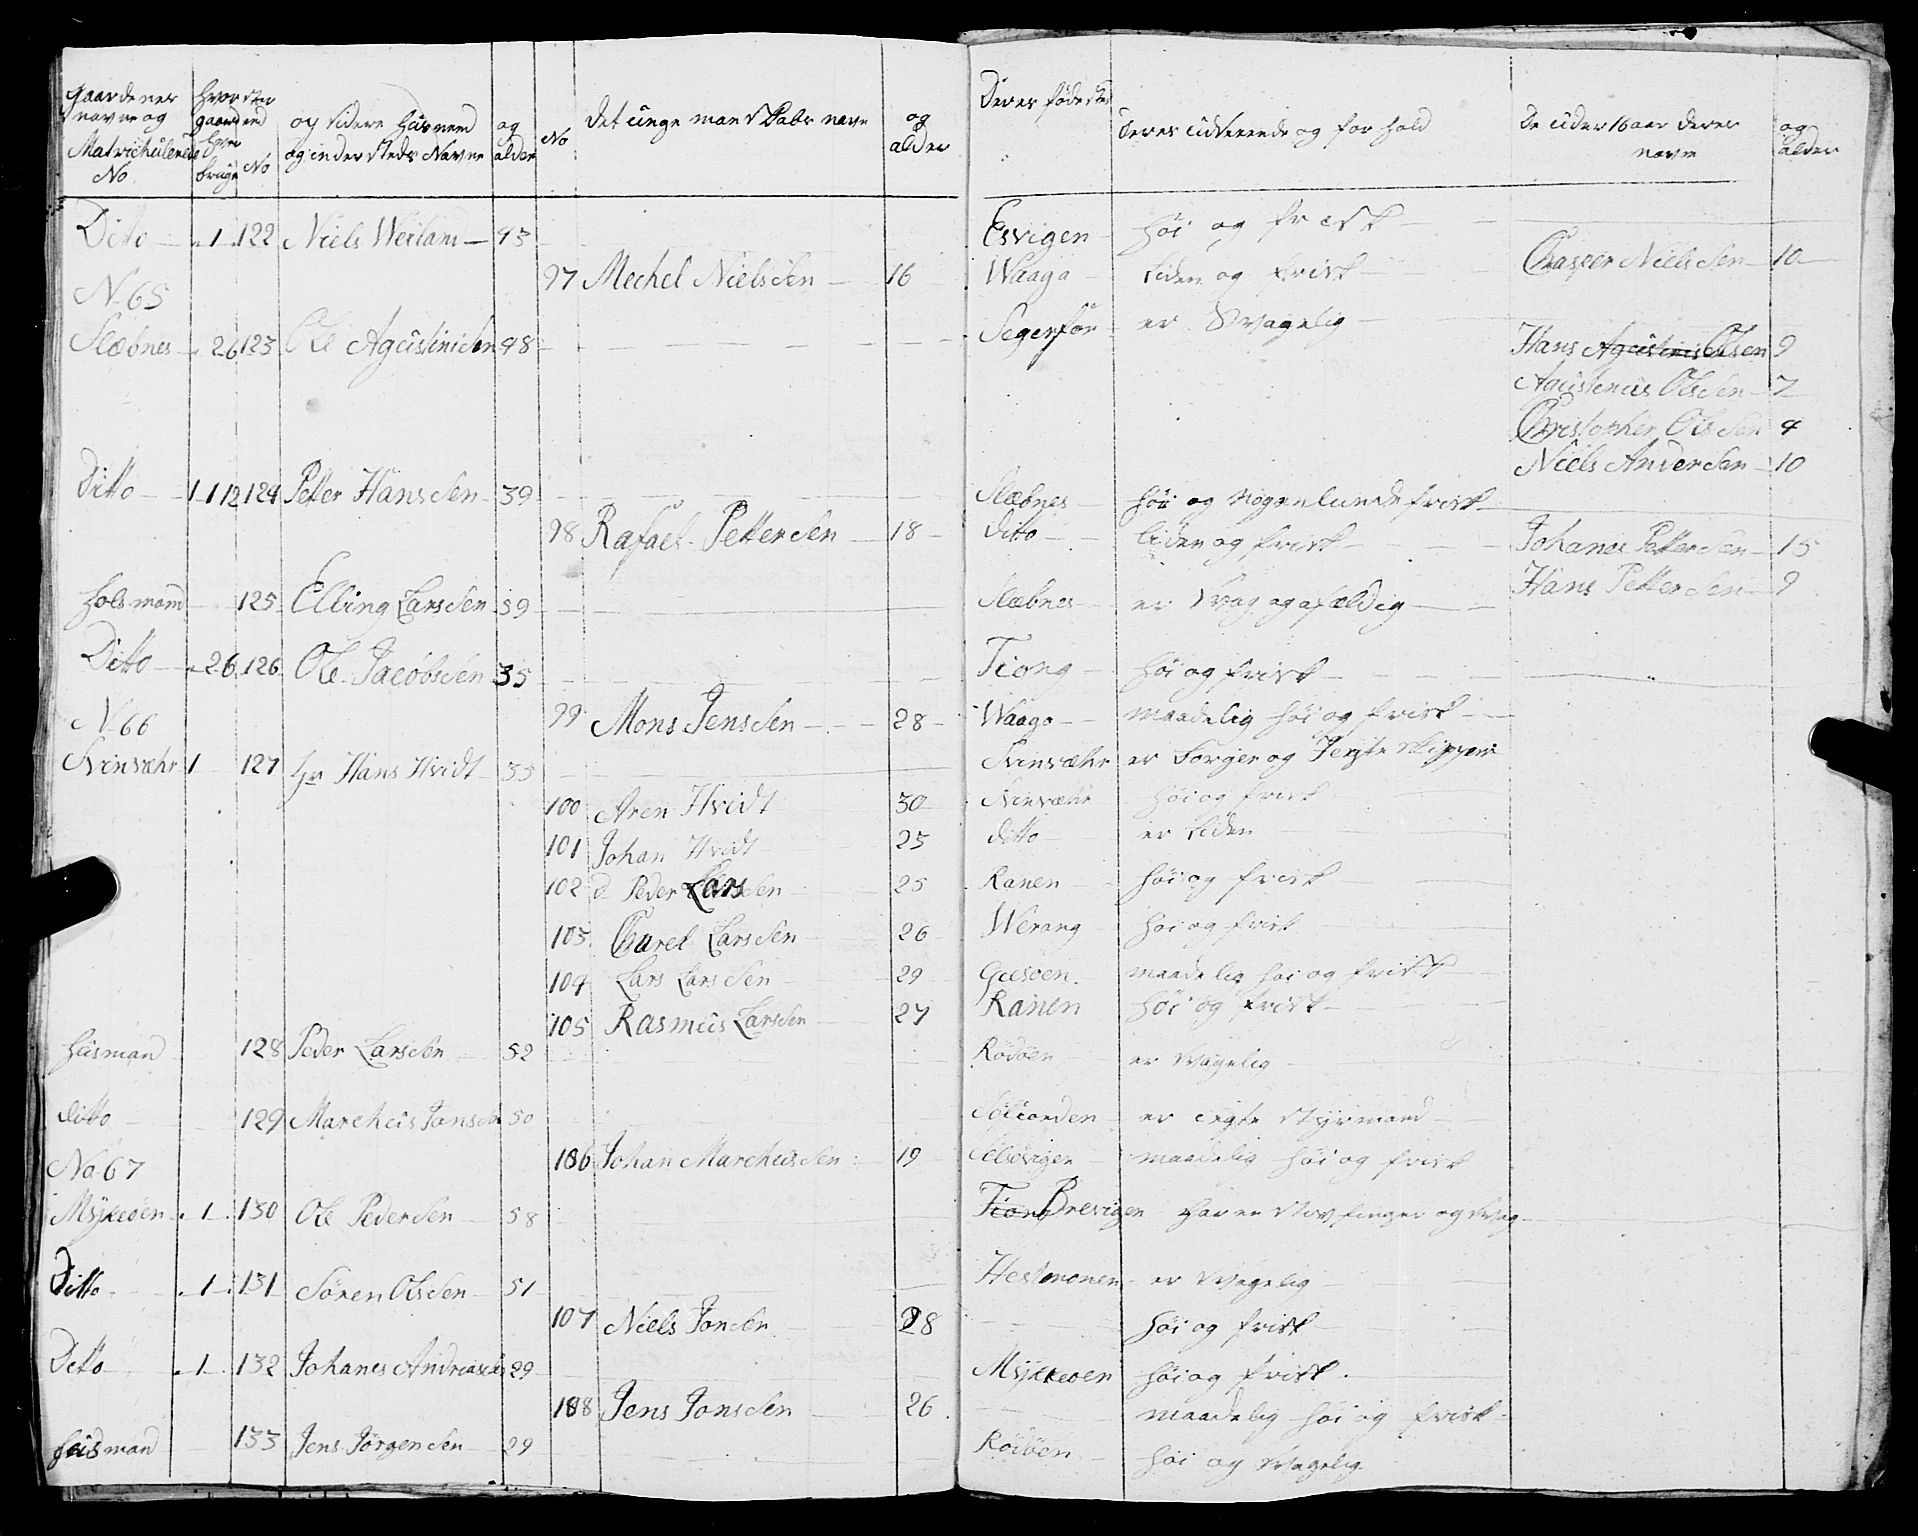 gaardenes navne og Matrichulerede No | hvor stor gaard end hver bruge | No | og sidere Husmend og indersteds Navne | og alder | No | Det unge mandskabs navne | og alder | Deres føde sted | Deres udseende og forhold | De under 16 aar deres navne | og alder
Ditto 1 122 Niels Weiland 43 Esvigen høi og frisk
97 Mechel Nielssen 16 Waaga liden og frisk Chasper Nielssen 10
No 65
Slæbnes 26 123 Ole Agustinisen 48 Segerfor er Svagelig
Hans Agustinis Olsen 9
Agustenus Olssen 7
Christopher Olssen 4
Niels Andersen 10
Ditto 1 1 12 124 Petter Hanssen 39 Slæbnes høi og nogenlunde frisk
98 Rafael Pettersen 18 ditto liden og frisk Johanes Pettersen 15
Hans Pettersen 9
holsmand 125 Elling Larssen 59 Slæbnes er Svag og afældig
Ditto 26 126 Ole Jacobssen 35 Tiong høi og frisk
99 Mons Jenssen 28 Waago maadelig høi og frisk
N 66
Svinvæhr 1 127 Hr Hans Hvidt 55 Svinvæhr er borger og Jegte skipper
100 Aren Hvidt 30 Svinvæhr høi og frisk
101 Johan Hvidt 25 ditto er liden
102 d Peder Larssen 25 Ranen høi og frisk
103 Charel Larssen 26 Werang høi og frisk
104 Lars Larssen 29 Guesøen maadelig høi og frisk
105 Rasmus Larssen 27 Ranen høi og frisk
huusmand 128 Peder Larssen 52 Rødøen er svagelig
ditto 129 Marchus Jonsen 50 Sølfiorden er Jegte Styrmand
106 Johan Marchussen 19 Selsøvigen maadelig høi og frisk
No 67
Myкeøen 1 130 Ole Pedersen 58 Tiong Brevigen har en stiv finger og svag
Ditto 1 131 Søren Olssen 51 Hestmonen er svagelig
107 Niels Jonsen 28 høi og frisk
Ditto 1 132 Johanes Andreassen 29 Mykeøen høi og frisk
108 Jens Jonssen 26 maadelig høi og frisk
huusmand 133 Jens Jørgensen 29 Rødøen høi og svagelig